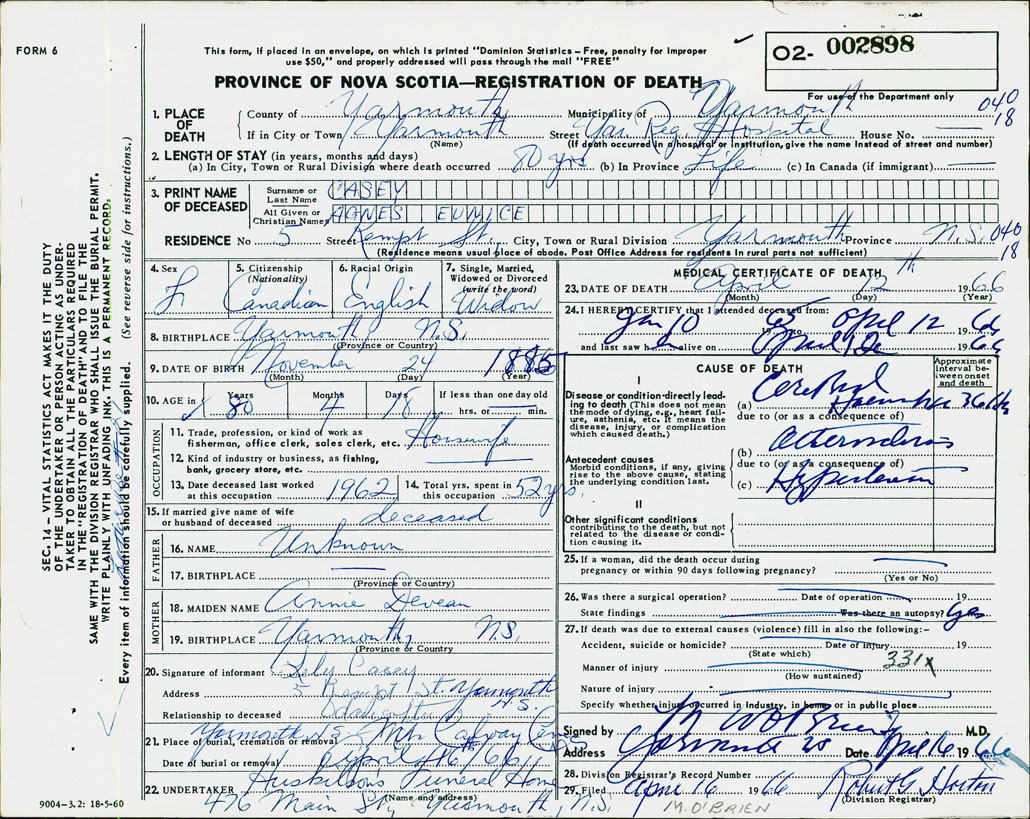 FORM 6
This form, if placed in an envelope, on which is printed "Dominion Statistics – Free, penalty for improper
use $50," and properly addressed will pass through the mail "FREE"
02- 002898
PROVINCE OF NOVA SCOTIA—REGISTRATION OF DEATH
For use of the Department only
1. PLACE OF DEATH
County of Yarmouth Municipality of Yarmouth 040
If in City or Town Yarmouth Street Yar. Reg. Hospital House No. 18
(Name) (If death occurred in a hospital or institution, give the name instead of street and number)
2. LENGTH OF STAY (in years, months and days)
(a) In City, Town or Rural Division where death occurred 80 yrs (b) In Province Life (c) In Canada (if immigrant)
3. PRINT NAME OF DECEASED
Surname or Last Name CASEY
All Given or Christian Names AGNES EUNICE
RESIDENCE No 5 Street Kempt St. City, Town or Rural Division Yarmouth Province N.S. 040
18
(Residence means usual place of abode. Post Office Address for residents in rural parts not sufficient)
4. Sex F
5. Citizenship (Nationality) Canadian
6. Racial Origin English
7. Single, Married, Widowed or Divorced (write the word) Widow
8. BIRTHPLACE Yarmouth N.S.
(Province or Country)
9. DATE OF BIRTH November 24 1885
(Month) (Day) (Year)
10. AGE in Years 80 Months 4 Days 18 If less than one day old
hrs. or min.
OCCUPATION
11. Trade, profession, or kind of work as
fisherman, office clerk, sales clerk, etc. Housewife
12. Kind of industry or business, as fishing,
bank, grocery store, etc.
13. Date deceased last worked
at this occupation 1962
14. Total yrs. spent in
this occupation 52 yrs.
15. If married give name of wife
or husband of deceased deceased
FATHER
16. NAME Unknown
17. BIRTHPLACE
(Province or Country)
MOTHER
18. MAIDEN NAME Annie Devean
19. BIRTHPLACE Yarmouth, N.S.
(Province or Country)
20. Signature of informant Casey
Address 5 St. Yarmouth N.S.
Relationship to deceased daughter
21. Place of burial, cremation or removal Yarmouth N.S. Mt. Calvary Cem
Date of burial or removal April 16/66
22. UNDERTAKER Huskilsons Funeral Home
(Name and address)
476 Main St, Yarmouth, N.S.
MEDICAL CERTIFICATE OF DEATH
23. DATE OF DEATH April 12th 1966
(Month) (Day) (Year)
24. I HEREBY CERTIFY that I attended deceased from:
Jan 10 1965 to April 12 1966
and last saw h alive on April 12 1966
CAUSE OF DEATH
Approximate interval between onset and death
I
Disease or condition directly leading to death (This does not mean the mode of dying, e.g., heart failure, asthenia, etc. It means the disease, injury, or complication which caused death.)
(a) Cerebral Haemorrhage 36 hrs
due to (or as a consequence of)
Antecedent causes
Morbid conditions, if any, giving rise to the above cause, stating the underlying condition last.
(b) Atherosclerosis
due to (or as a consequence of)
(c) Hypertension
II
Other significant conditions
contributing to the death, but not related to the disease or condition causing it.
25. If a woman, did the death occur during
pregnancy or within 90 days following pregnancy?
(Yes or No)
26. Was there a surgical operation? Date of operation 19
State findings Was there an autopsy? Yes
27. If death was due to external causes (violence) fill in also the following:–
Accident, suicide or homicide? Date of injury 19
(State which) 331x
Manner of injury
(How sustained)
Nature of injury
Specify whether injury occurred in Industry, in home or in public place
Signed by M WO'Brien M.D.
Address Yarmouth NS Date April 16 1966
28. Division Registrar's Record Number
29. Filed April 16 1966 Robert G. Horton
(Division Registrar)
M. O'BRIEN
9004–3.2: 18-5-60
SEC. 14 – VITAL STATISTICS ACT MAKES IT THE DUTY
OF THE UNDERTAKER OR PERSON ACTING AS UNDER-
TAKER TO OBTAIN ALL THE PARTICULARS REQUIRED
IN THE "REGISTRATION OF DEATH" AND TO FILE THE
SAME WITH THE DIVISION REGISTRAR WHO SHALL ISSUE THE BURIAL PERMIT.
WRITE PLAINLY WITH UNFADING INK. THIS IS A PERMANENT RECORD.
Every item of information should be carefully supplied. (See reverse side for instructions.)